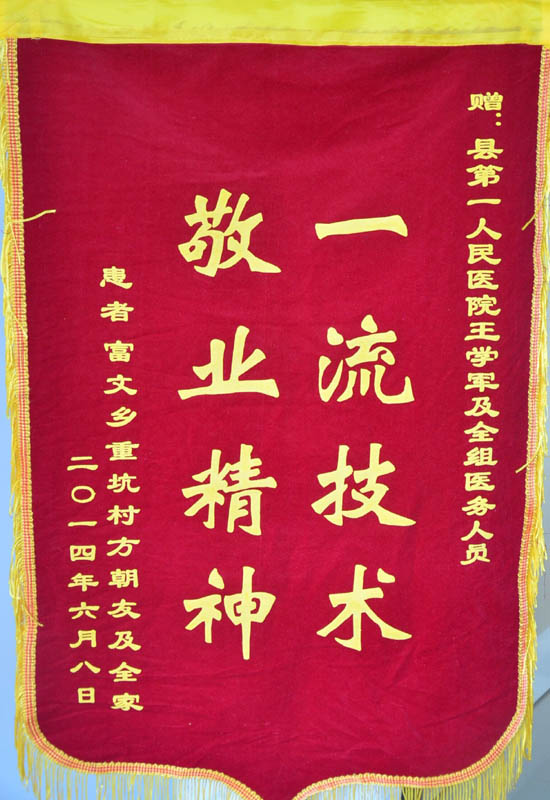 赠：县第一人民医院王学军及全组医务人员
一流技术
敬业精神
患者 富文乡重坑村方朝友及全家
二〇一四年六月八日